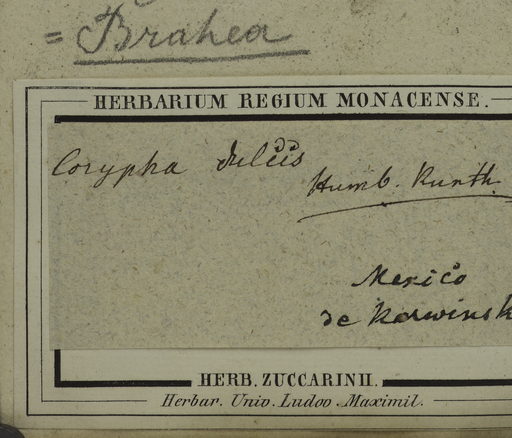 = Brahea
HERBARIUM REGIUM MONACENSE.
Corypha dulcis
Humb. Kunth.
Mexico
de Karwinsk
HERB. ZUCCARINII.
Herbar. Univ. Ludov. Maximil.